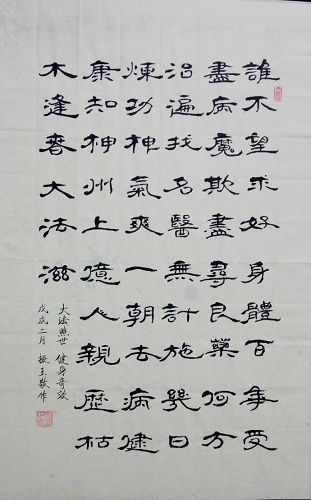 誰不望求好身體百年受
盡病魔欺盡尋良藥何方
治遍找名醫無計施幾日
煉功神氣爽一朝去病健
康知神州上億人親歷枯
木逢春大法滋
大法照世 健身奇效
戊戌二月 振玉敬作